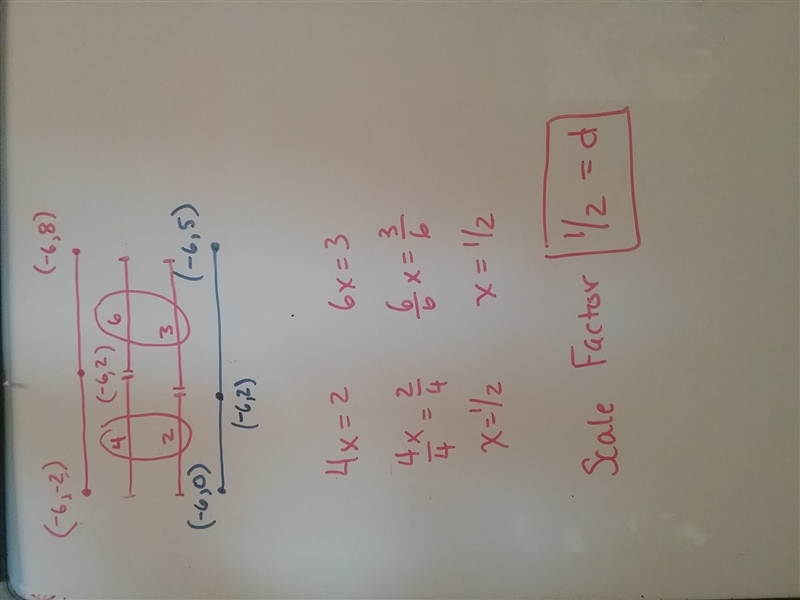 (-6,-2) (-6,8)
(-6,2)
4 6
2 3
(-6,0) (-6,5)
(-6,2)
4x=2 6x=3
4x/4=2/4 6/6x=3/6
x=1/2 x=1/2
Scale Factor 1/2=d